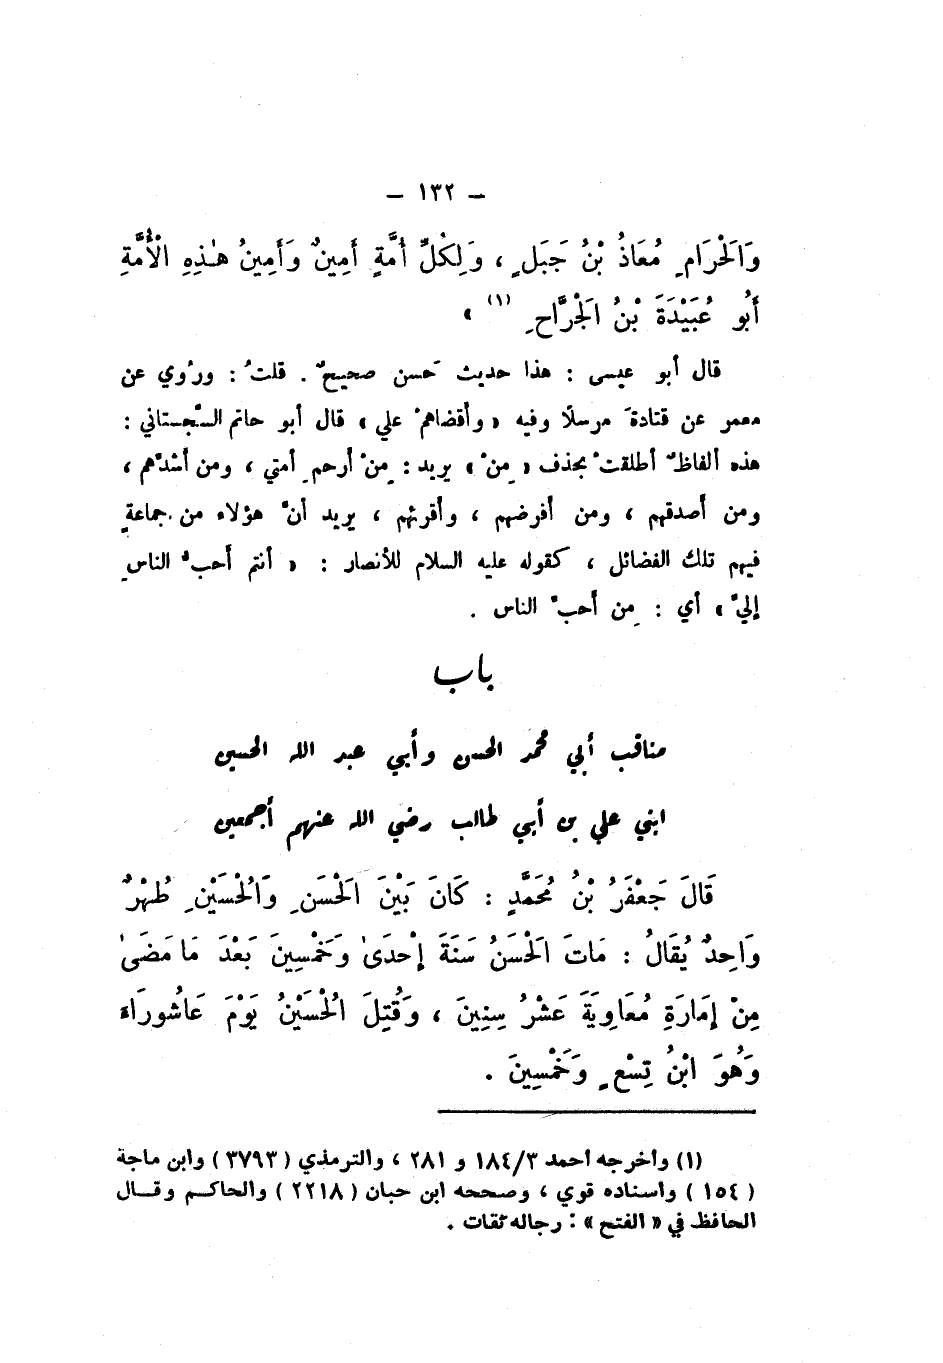 – ١٣٢ –
وَالْحَرَامِ مُعَاذُ بْنُ جَبَلٍ ، وَلِكُلِّ أُمَّةٍ أَمِينٌ وَأَمِينُ هٰذِهِ الْأُمَّةِ
أَبُو عُبَيْدَةَ بْنُ الْجَرَّاحِ (١) »
قال أبو عيسى : هذا حديث حَسن صحيحٌ . قلتُ : ورُوي عن
معمر عن قتادةَ مرسلًا وفيه « وأقضاهمْ علي » قال أبو حاتم السَّجستاني :
هذه ألفاظٌ أطلقتْ بحذف « مِنْ » يريد : مِنْ أرحمِ أمتي ، ومن أشدِّهم ،
ومن أصدقهم ، ومن أفرضهم ، وأقرئهم ، يريد أنَّ هؤلاء من جماعةٍ
فيهم تلك الفضائل ، كقوله عليه السلام للأنصار : « أنتم أحبُّ الناسِ
إليَّ » أي : مِن أحبِّ الناس .
باب
مناقب أبي محمد الحسن وأبي عبد الله الحسين
ابني علي بن أبي طالب رضي الله عنهم أجمعين
قَالَ جَعْفَرُ بْنُ مُحَمَّدٍ : كَانَ بَيْنَ الْحَسَنِ وَالْحُسَيْنِ طُهْرٌ
وَاحِدٌ يُقَالُ : مَاتَ الْحَسَنُ سَنَةَ إِحْدَىٰ وَخَمْسِينَ بَعْدَ مَا مَضَىٰ
مِنْ إِمَارَةِ مُعَاوِيَةَ عَشْرُ سِنِينَ ، وَقُتِلَ الْحُسَيْنُ يَوْمَ عَاشُورَاءَ
وَهُوَ ابْنُ تِسْعٍ وَخَمْسِينَ .
(١) وأخرجه أحمد ١٨٤/٣ و ٢٨١ ، والترمذي ( ٣٧٩٣ ) وابن ماجة
( ١٥٤ ) واسناده قوي ، وصححه ابن حبان ( ٢٢١٨ ) والحاكم وقال
الحافظ في « الفتح » : رجاله ثقات .